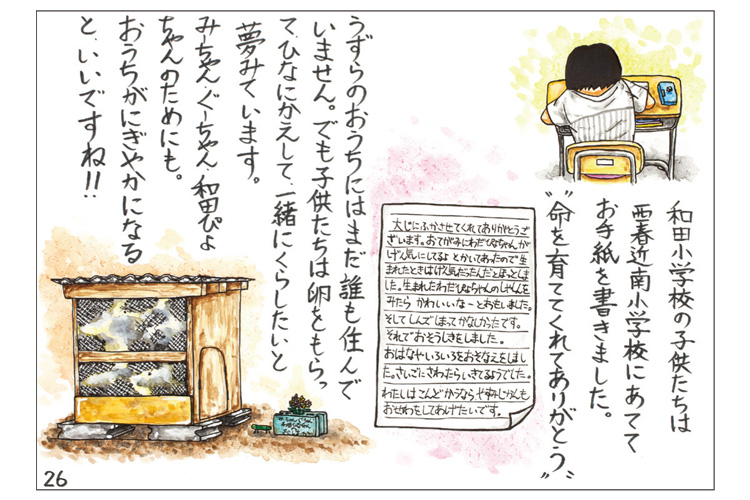 和田小学校の子供たちは
西春近南小学校にあてて
お手紙を書きました。
〝命を育ててくれてありがとう〟
大じにふかさせてくれてありがとうご
ざいます。おてがみにわだぴよちゃんが
げん気にしてるよとかいてあったので生
まれたときはげん気だったんだとほっとしま
した。生まれたわだぴよちゃんのしゃしんを
みたら かわいいなーとおもいました。
そしてしんでしまってかなしかったです。
それでおそうしきをしました。
おはなやいろいろをおそなえをしまし
た。さいごにさわったらいきてるようでした。
わたしはこんどかうなら やすみじかんも
おせわをしてあげたいです。
うずらのおうちにはまだ誰も住んで
いません。でも子供たちは卵をもらっ
て、ひなにかえして、一緒にくらしたいと
夢みています。
みーちゃん・ぐーちゃん・和田ぴよ
ちゃんのためにも。
おうちがにぎやかになる
と、いいですね!!
26